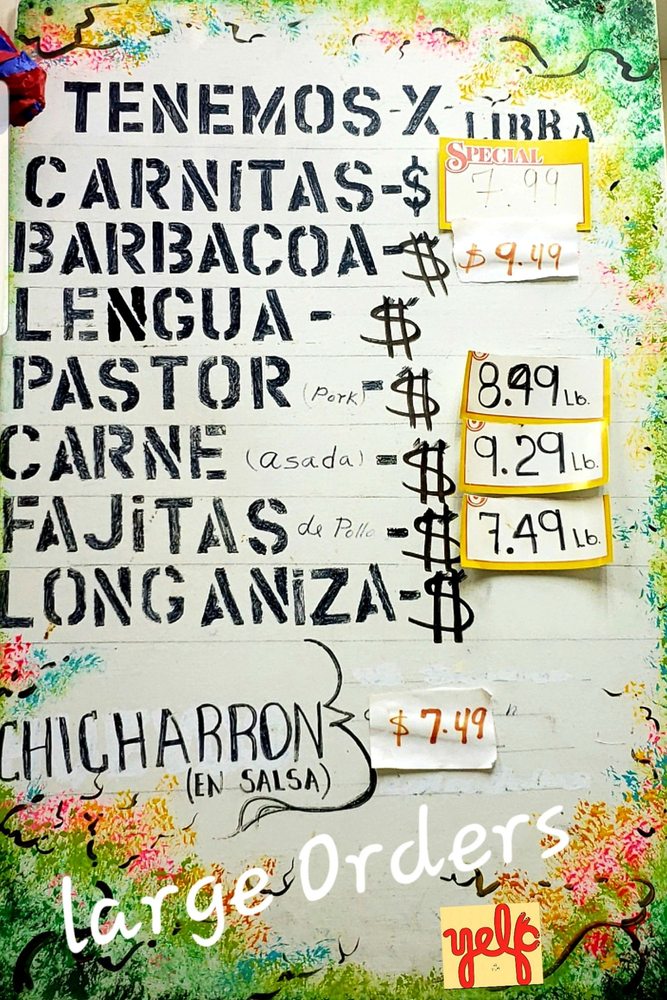 TENEMOS-X-LIBRA
CARNITAS-$ SPECIAL 7.99
BARBACOA-$ $9.49
LENGUA - $
PASTOR (Pork) -$ 8.49 Lb.
CARNE (asada) -$ 9.29 Lb.
FAJITAS de Pollo -$ 7.49 Lb.
LONGANIZA-$
CHICHARRON $7.49
(EN SALSA)
large Orders
yelp